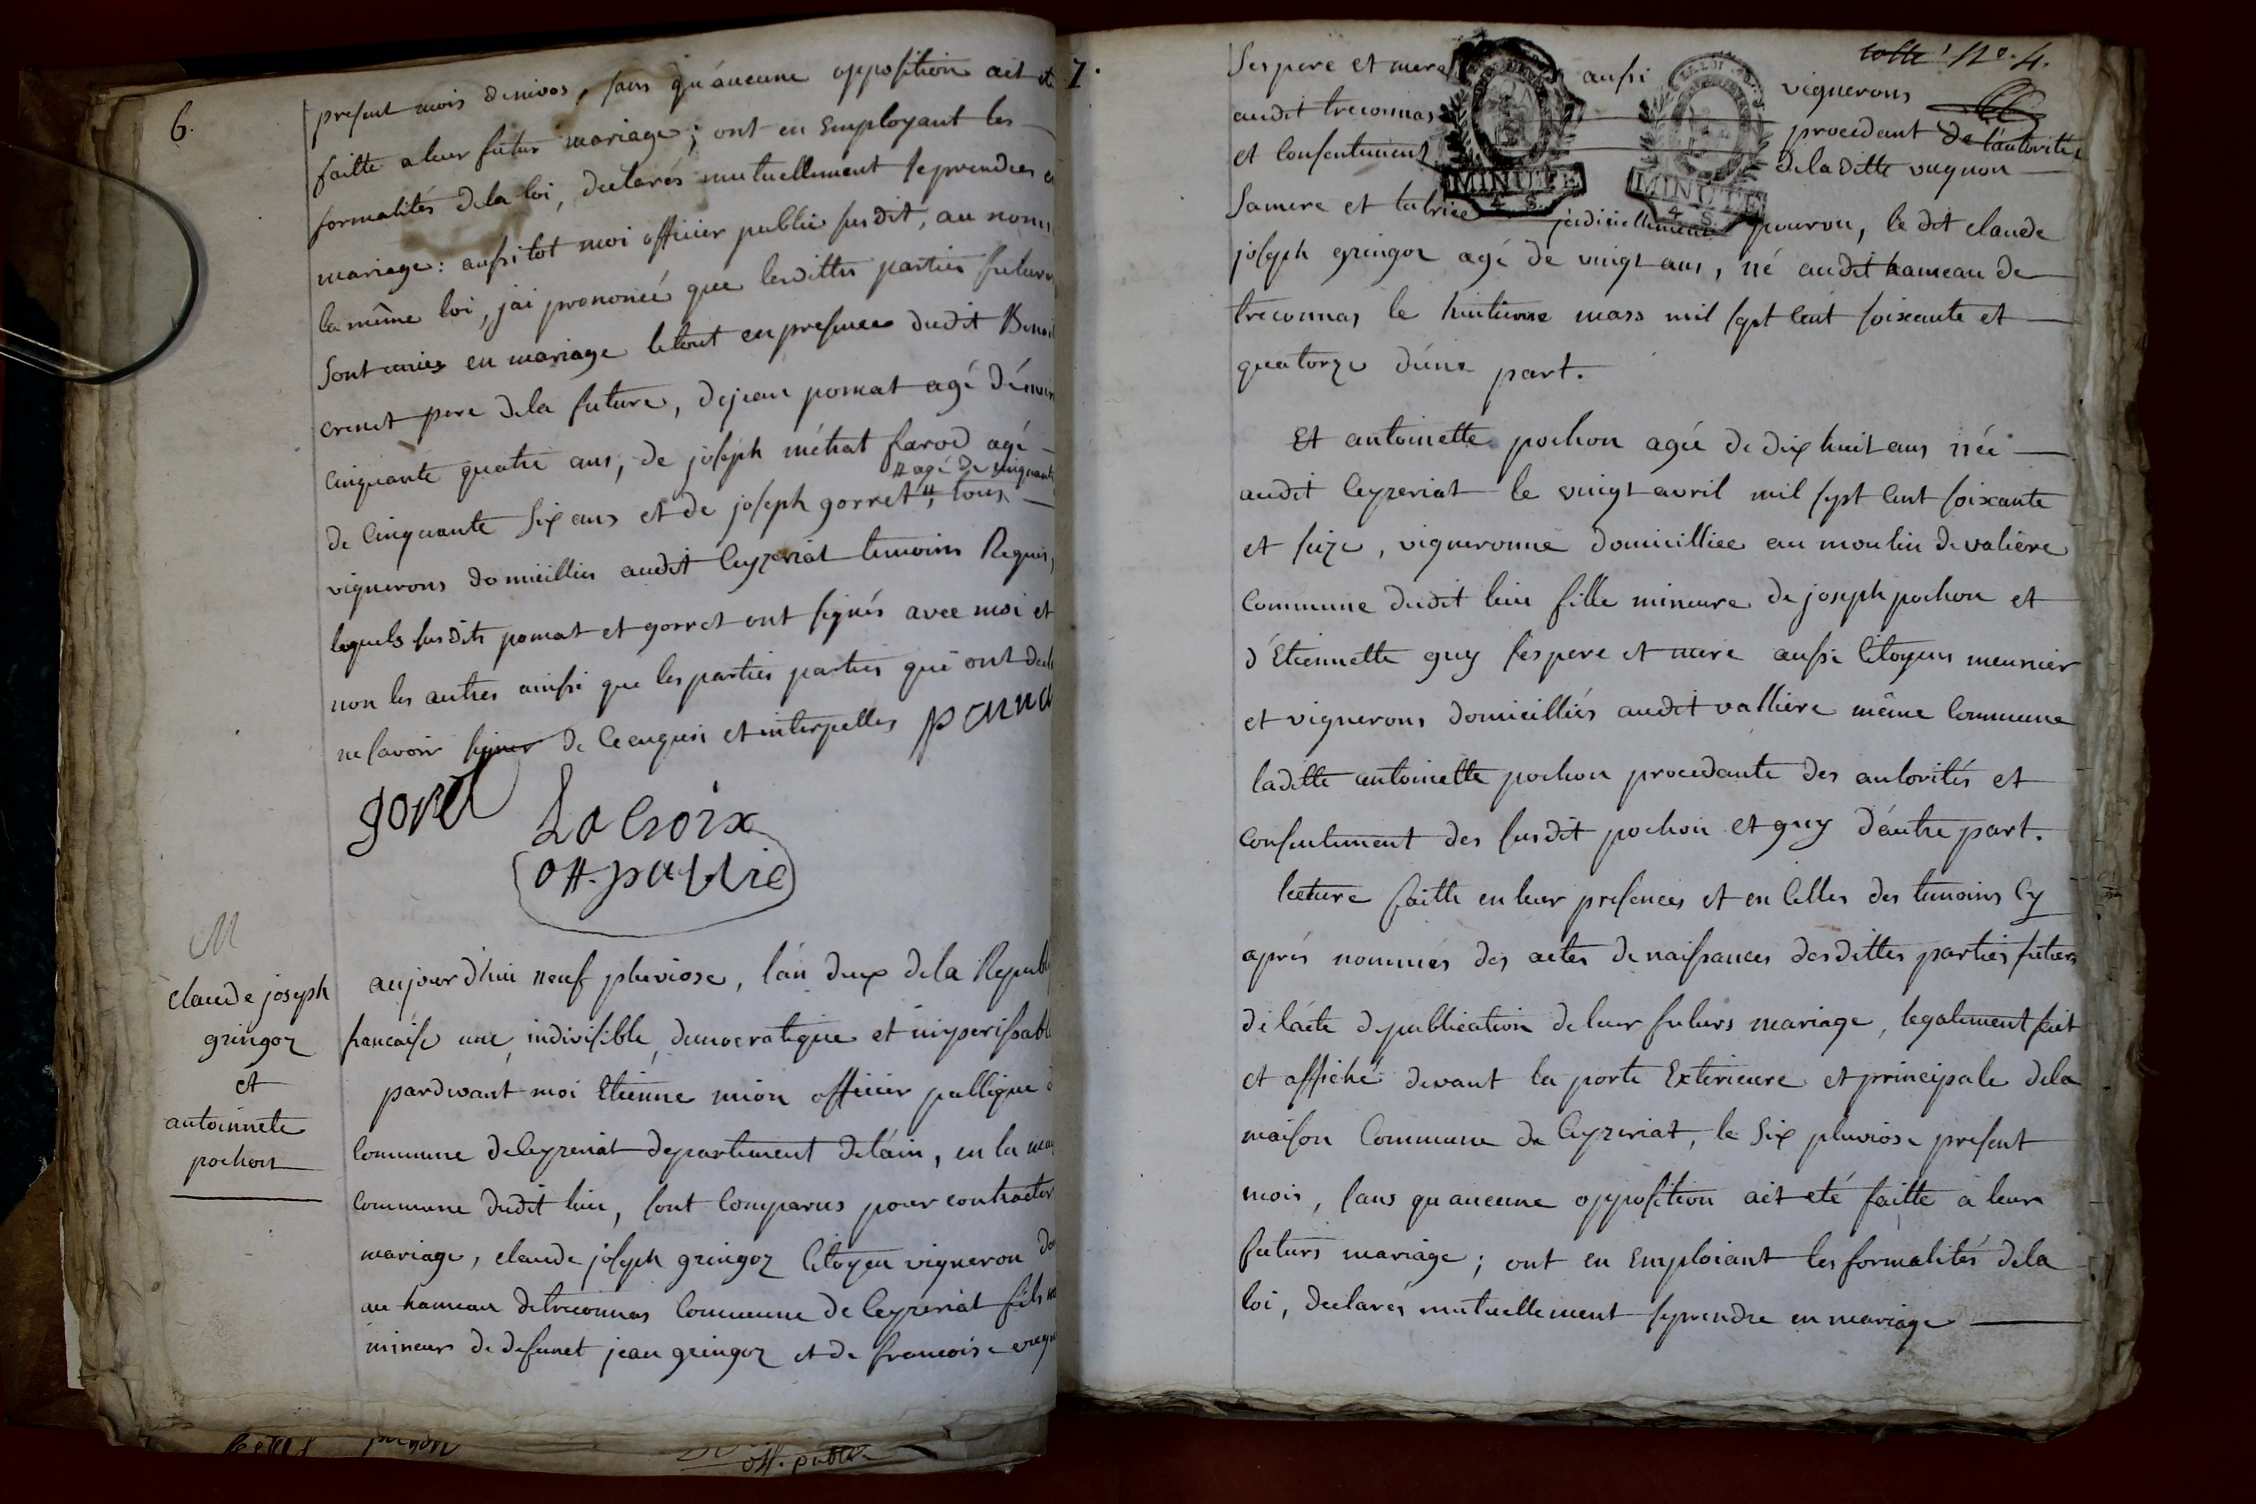 6.
present mois denivos, sans qu'áucune opposition ait eté
faitte a leur futur mariage; ont en Employant les
formalités dela loi, declarés mutuellement seprendre en
mariage: aussitot moi officier public susdit, au nom
la même loi, j'ai prononcé que lesdittes parties futures
Sont unies en mariage letout en presence dudit Benoit
crenet pere dela future, dejean pomat agé dénviron
Cinquante quatre ans, de joséph métrat farod agé
de Cinquante Six ans et de joseph gorret", tous
" agé de cinquante
vignerons domicilliés audit Ceyzeriat temoins Requis,
lequels susdits pomat et gorret ont signés avec moi et
non les autres ainssi que les parties parties qui ont decla
ne savoir signer de Ce enquis et interpelles pomat
goret
La Croix
off. publie
M
claude joseph
gringoz
et
antoinnete
pochon
aujourdhui neuf pluviose, lán deux dela Republ
francaise une, indivisible, democratique et imperissable
pardevant moi Etienne mion officier publique d
Commune deCeyzeriat departement deláin, en la mai
Commune dudit lieu, sont Comparus pour contracter
mariage, claude joseph gringoz Citoyen vigneron do
au hameau detreconnas Commune de Ceyzeriat fils
mineurs de defunct jean gringoz et de francoise vugn
off. public
7.
cotte 1 No. 4.
Ses pere et mere aussi vignerons
audit treconnas procedant de l'autorité
et Consentement dela ditte vugnon
Samere et tutrice judiciellement pourvu, le dit claude
joseph gringoz agé de vingt ans, né audit hameau de
treconnas le huitieme mars mil sept Cent soixante et
quatorze d'une part.
Et antoinette pochon agée de dix huit ans née
audit Ceyzeriat le vingt avril mil sept Cent soixante
et seize, vigneronne domicilliee au moulin devaliere
Commune dudit lieu fille mineure de joseph pochon et
d'Etiennette guy ses pere et mere aussi Citoyens meunier
et vignerons domicilliés audit valliere même Commune
laditte antoinette pochon procedante des autorités et
Consentement des susdit pochon et guy d'autre part.
lecture faitte en leur presences et en Celles des temoins Cy
aprés nommés des actes de naissances desdittes parties futurs
de lácte depublication deleur futurs mariage, legalement fait
et affiché devant la porte Exterieure et principale dela
maison Commune de Ceyzeriat, le Six pluviose present
mois, sans qu aucune opposition ait eté faitte a leur
futurs mariage; ont en Emploiant les formalités dela
loi, declarés mutuellement seprendre en mariage
MINUTE
4. S.
MINUTE
4. S.